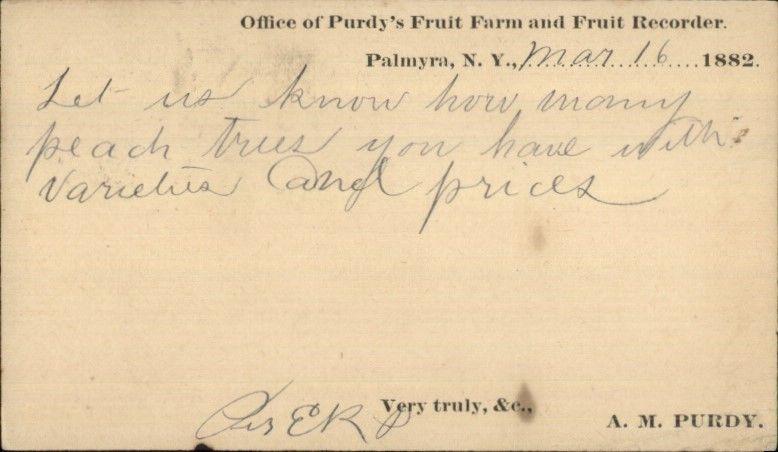 Office of Purdy's Fruit Farm and Fruit Recorder.
Palmyra, N. Y., Mar 16 1882.
Let us know how many
peach trees you have with
varieties and prices
Very truly, &c.,
Per EKP
A. M. PURDY.